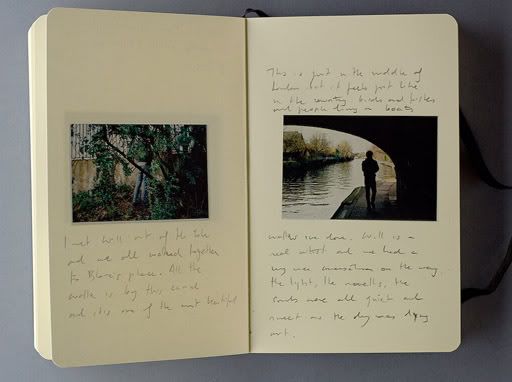 I met Will out of the tube
and we all walked together
to Blanca's place. All the
walk is by this canal
and it is one of the most beautiful
This is just in the middle of
London but it feels just like
in the country: birds and fishes
and people living on boats
walks I've done. Will is a
real artist and we had a
very nice conversation on the way,
the light, the smells, the
sounds were all quiet and
sweet as the day was dying
out.